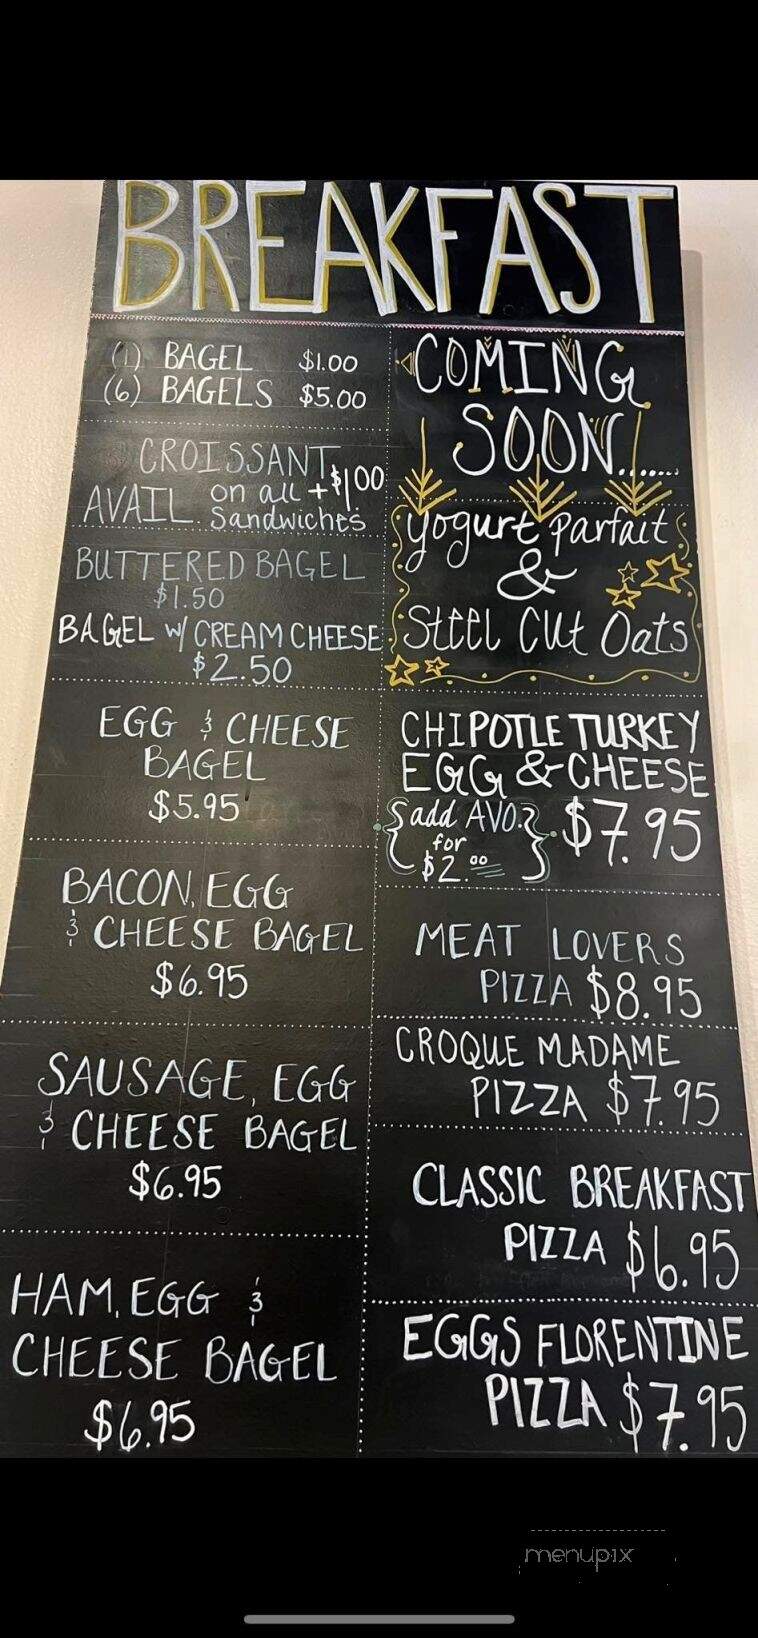 BREAKFAST
(1) BAGEL $1.00
(6) BAGELS $5.00
CROISSANT
AVAIL. on all + $1.00
Sandwiches
BUTTERED BAGEL
$1.50
BAGEL w/ CREAM CHEESE
$2.50
EGG & CHEESE
BAGEL
$5.95
BACON, EGG
& CHEESE BAGEL
$6.95
SAUSAGE, EGG
& CHEESE BAGEL
$6.95
HAM, EGG &
CHEESE BAGEL
$6.95
COMING
SOON.......
yogurt parfait
&
Steel Cut Oats
CHIPOTLE TURKEY
EGG & CHEESE
{add AVO. for $2.00} $7.95
MEAT LOVERS
PIZZA $8.95
CROQUE MADAME
PIZZA $7.95
CLASSIC BREAKFAST
PIZZA $6.95
EGGS FLORENTINE
PIZZA $7.95
menupix